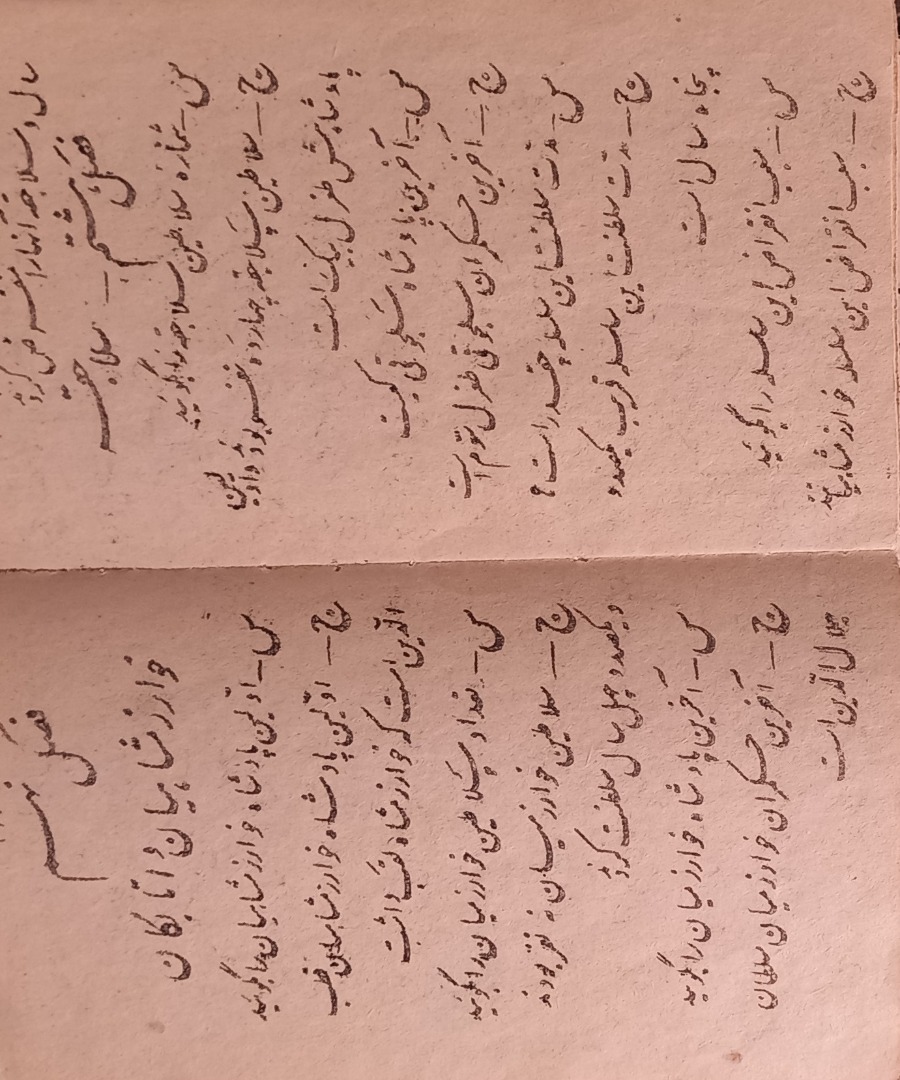 سال و سلاجقه آنها را منقرض کردند
فصل هشتم — سلاجقه
س - شماره سلاطین سلاجقه را بگوئید
ج — سلاطین سلاجقه چهارده نفر بودند و اولین
پادشاهش طغرل بیک است
س - آخرین پادشاه سلجوقی کیست
ج — آخرین حکمران سلجوقی طغرل سوم است
س - مدت سلطنت این سلسله چقدر است ؟
ج — مدت سلطنت این سلسله قریب یکصد و
پنجاه سال است
س - سبب انقراض این سلسله را بگوئید
ج — سبب انقراض این سلسله خوارزمشاهیانند
فصل نهم
خوارزمشاهیان و اتابکان
س - اولین پادشاه خوارزمشاهیان را بگوئید
ج — اولین پادشاه خوارزمشاهیان قطب
الدین است که خوارزمشاه لقب داشت
س - تعداد سلاطین خوارزمیان را بگوئید
ج — سلاطین خوارزمیان نه نفر بودند
و یکصد و چهل سال سلطنت کردند
س - آخرین پادشاه خوارزمیان را بگوئید
ج — آخرین حکمران خوارزمیان سلطان
جلال الدین است